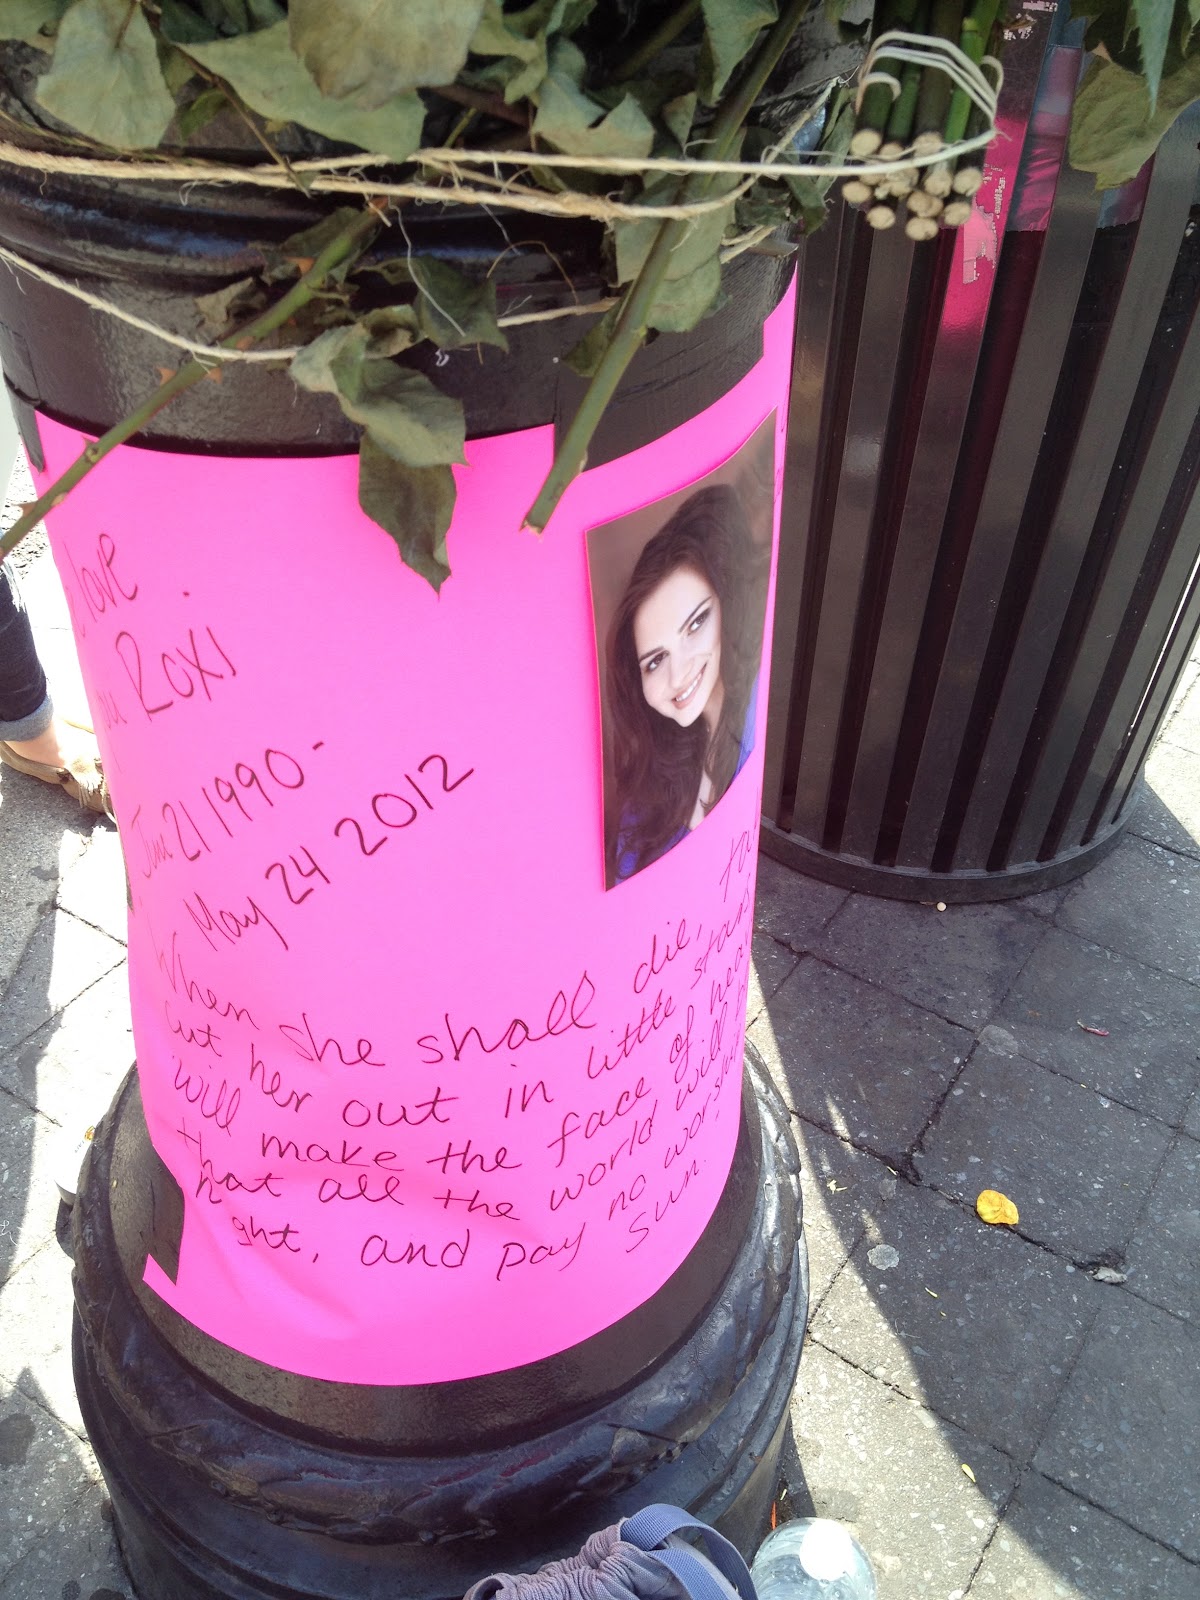 love
Roxi
June 21 1990 -
May 24 2012
When she shall die,
cut her out in little stars
will make the face of
that all the world will
night, and pay no worship
sun.